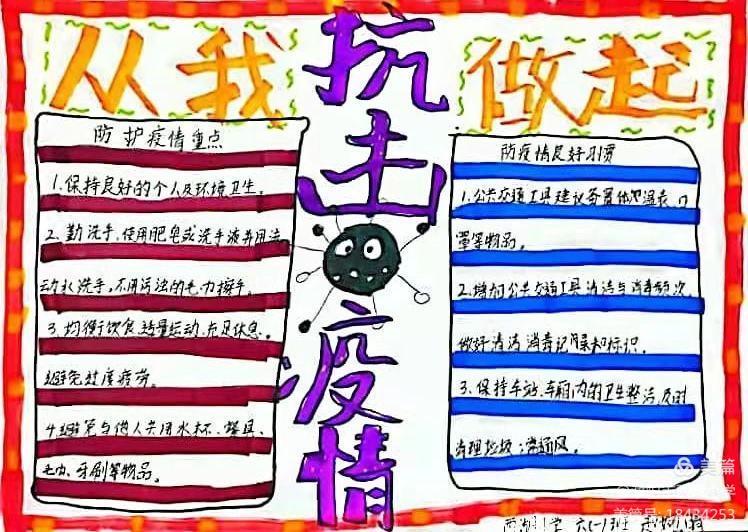 从我
抗击疫情
做起
防护疫情重点
1.保持良好的个人及环境卫生。
2.勤洗手、使用肥皂或洗手液并用流
动水洗手,不用污浊的毛巾擦手。
3.均衡饮食、适量运动、充足休息、
避免过度疲劳。
4.避免与他人共用水杯、餐具、
毛巾、牙刷等物品。
防疫情良好习惯
1.公共交通工具建议备置体温表、口
罩等物品。
2.增加公共交通工具清洁与消毒频次,
做好清洁消毒记录和标识。
3.保持车站、车厢内的卫生整洁,及时
清理垃圾
通风。
美篇
美篇号:18484253